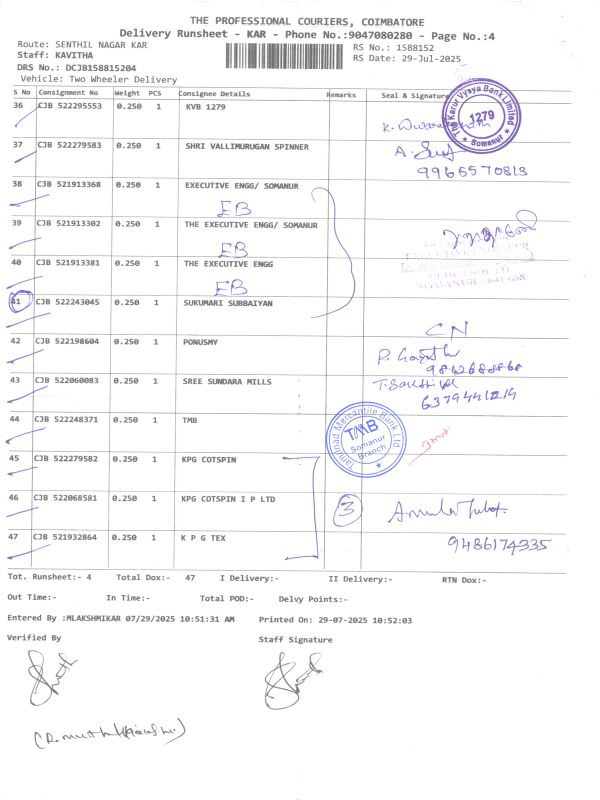 THE PROFESSIONAL COURIERS, COIMBATORE
Delivery Runsheet - KAR - Phone No.:9047080280 - Page No.:4
Route: SENTHIL NAGAR KAR
RS No.: 1588152
Staff: KAVITHA
RS Date: 29-Jul-2025
DRS No.: DCJB158815204
Vehicle: Two Wheeler Delivery
S No Consignment No Weight PCS Consignee Details Remarks Seal & Signature
36 CJB 522295553 0.250 1 KVB 1279
The Karur Vysya Bank Limited
1279
Somanur
37 CJB 522279583 0.250 1 SHRI VALLIMURUGAN SPINNER
9965570813
38 CJB 521913368 0.250 1 EXECUTIVE ENGG/ SOMANUR
EB
39 CJB 521913302 0.250 1 THE EXECUTIVE ENGG/ SOMANUR
EB
40 CJB 521913381 0.250 1 THE EXECUTIVE ENGG
EB
41 CJB 522243045 0.250 1 SUKUMARI SUBBAIYAN
CN
42 CJB 522198604 0.250 1 PONUSMY
43 CJB 522060083 0.250 1 SREE SUNDARA MILLS
44 CJB 522248371 0.250 1 TMB
Tamilnad Mercantile Bank Ltd
TMB
Somanur
Branch
45 CJB 522279582 0.250 1 KPG COTSPIN
46 CJB 522068581 0.250 1 KPG COTSPIN I P LTD
3
47 CJB 521932864 0.250 1 K P G TEX
9486174335
Tot. Runsheet:- 4 Total Dox:- 47 I Delivery:- II Delivery:- RTN Dox:-
Out Time:- In Time:- Total POD:- Delvy Points:-
Entered By :MLAKSHMIKAR 07/29/2025 10:51:31 AM Printed On: 29-07-2025 10:52:03
Verified By Staff Signature